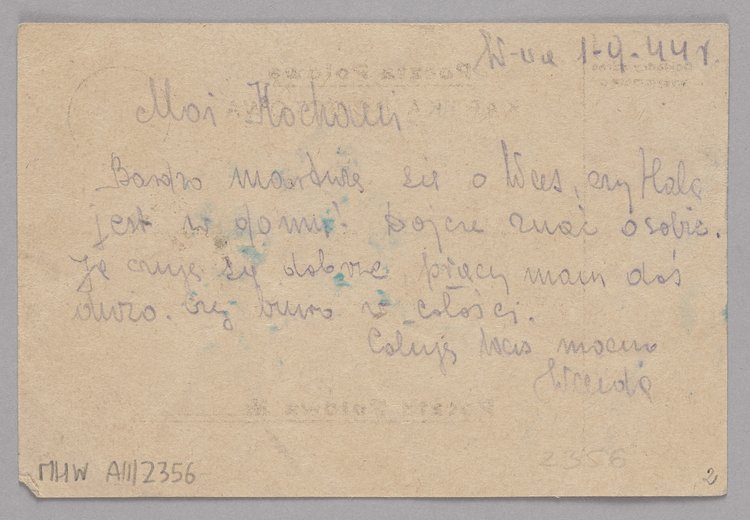 W-wa 1-9-44 r.
Moi Kochani
Bardzo martwię się o Was, czy Hala
jest w domu? Dajcie znać o sobie.
Ja czuję się dobrze, pracy mam doś
dużo. Czy biuro w całości.
Całuję Was mocno
MHW AII/2356
2356
2